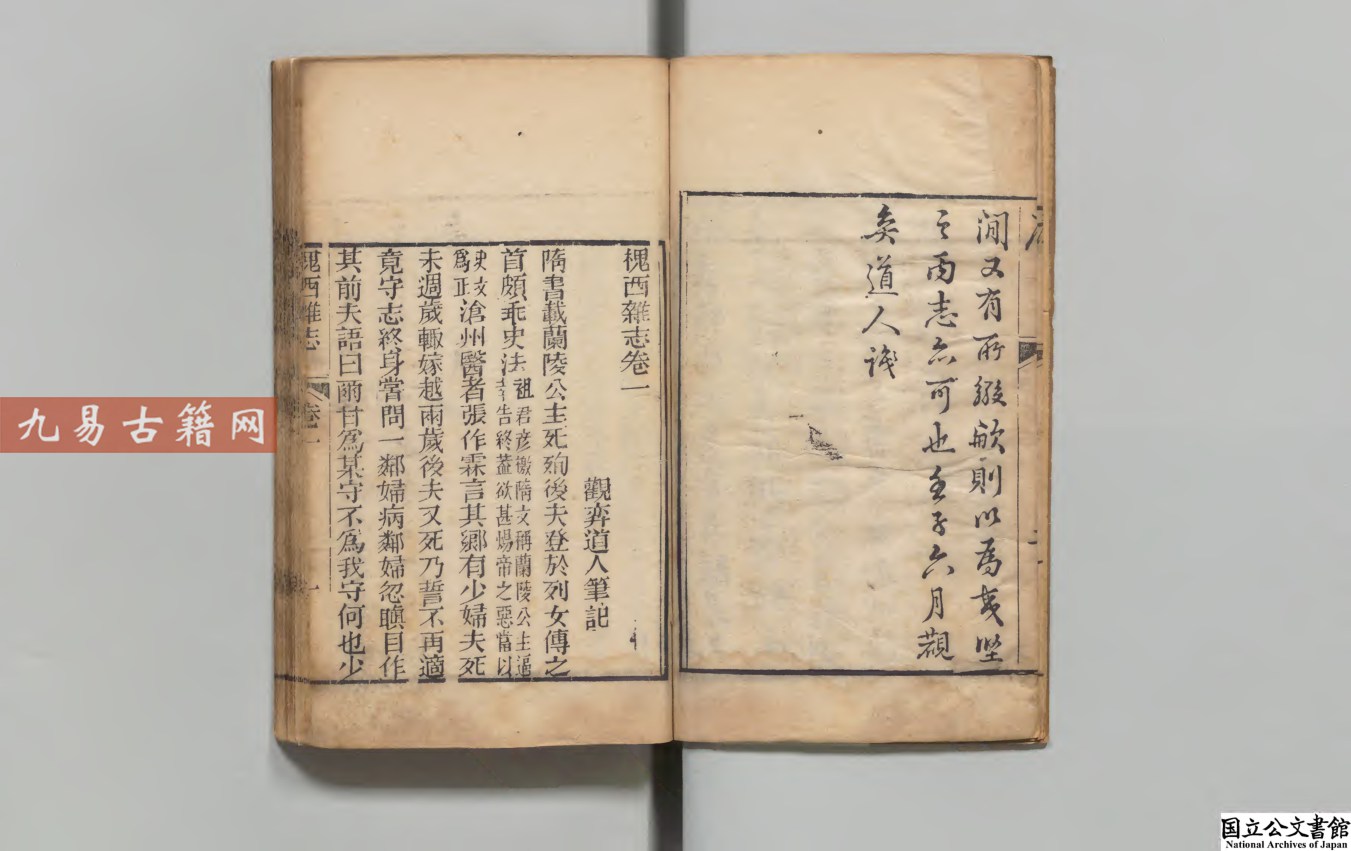 閒又有所綴歟則以為夷堅
之丙志亦可也壬子六月觀
奕道人識
槐西雜志卷一
觀弈道人筆記
隋書載蘭陵公主死殉後夫登於列女傳之
首頗乖史法祖君彥檄隋文稱蘭陵公主逼
幸告終蓋欲甚煬帝之惡當以
史文
爲正滄州醫者張作霖言其鄉有少婦夫死
未週歲輒嫁越兩歲後夫又死乃誓不再適
竟守志終身嘗問一鄰婦病鄰婦忽瞋目作
其前夫語曰爾甘爲某守不爲我守何也少
槐西雜志
卷一
一
九易古籍网
国立公文書館
National Archives of Japan